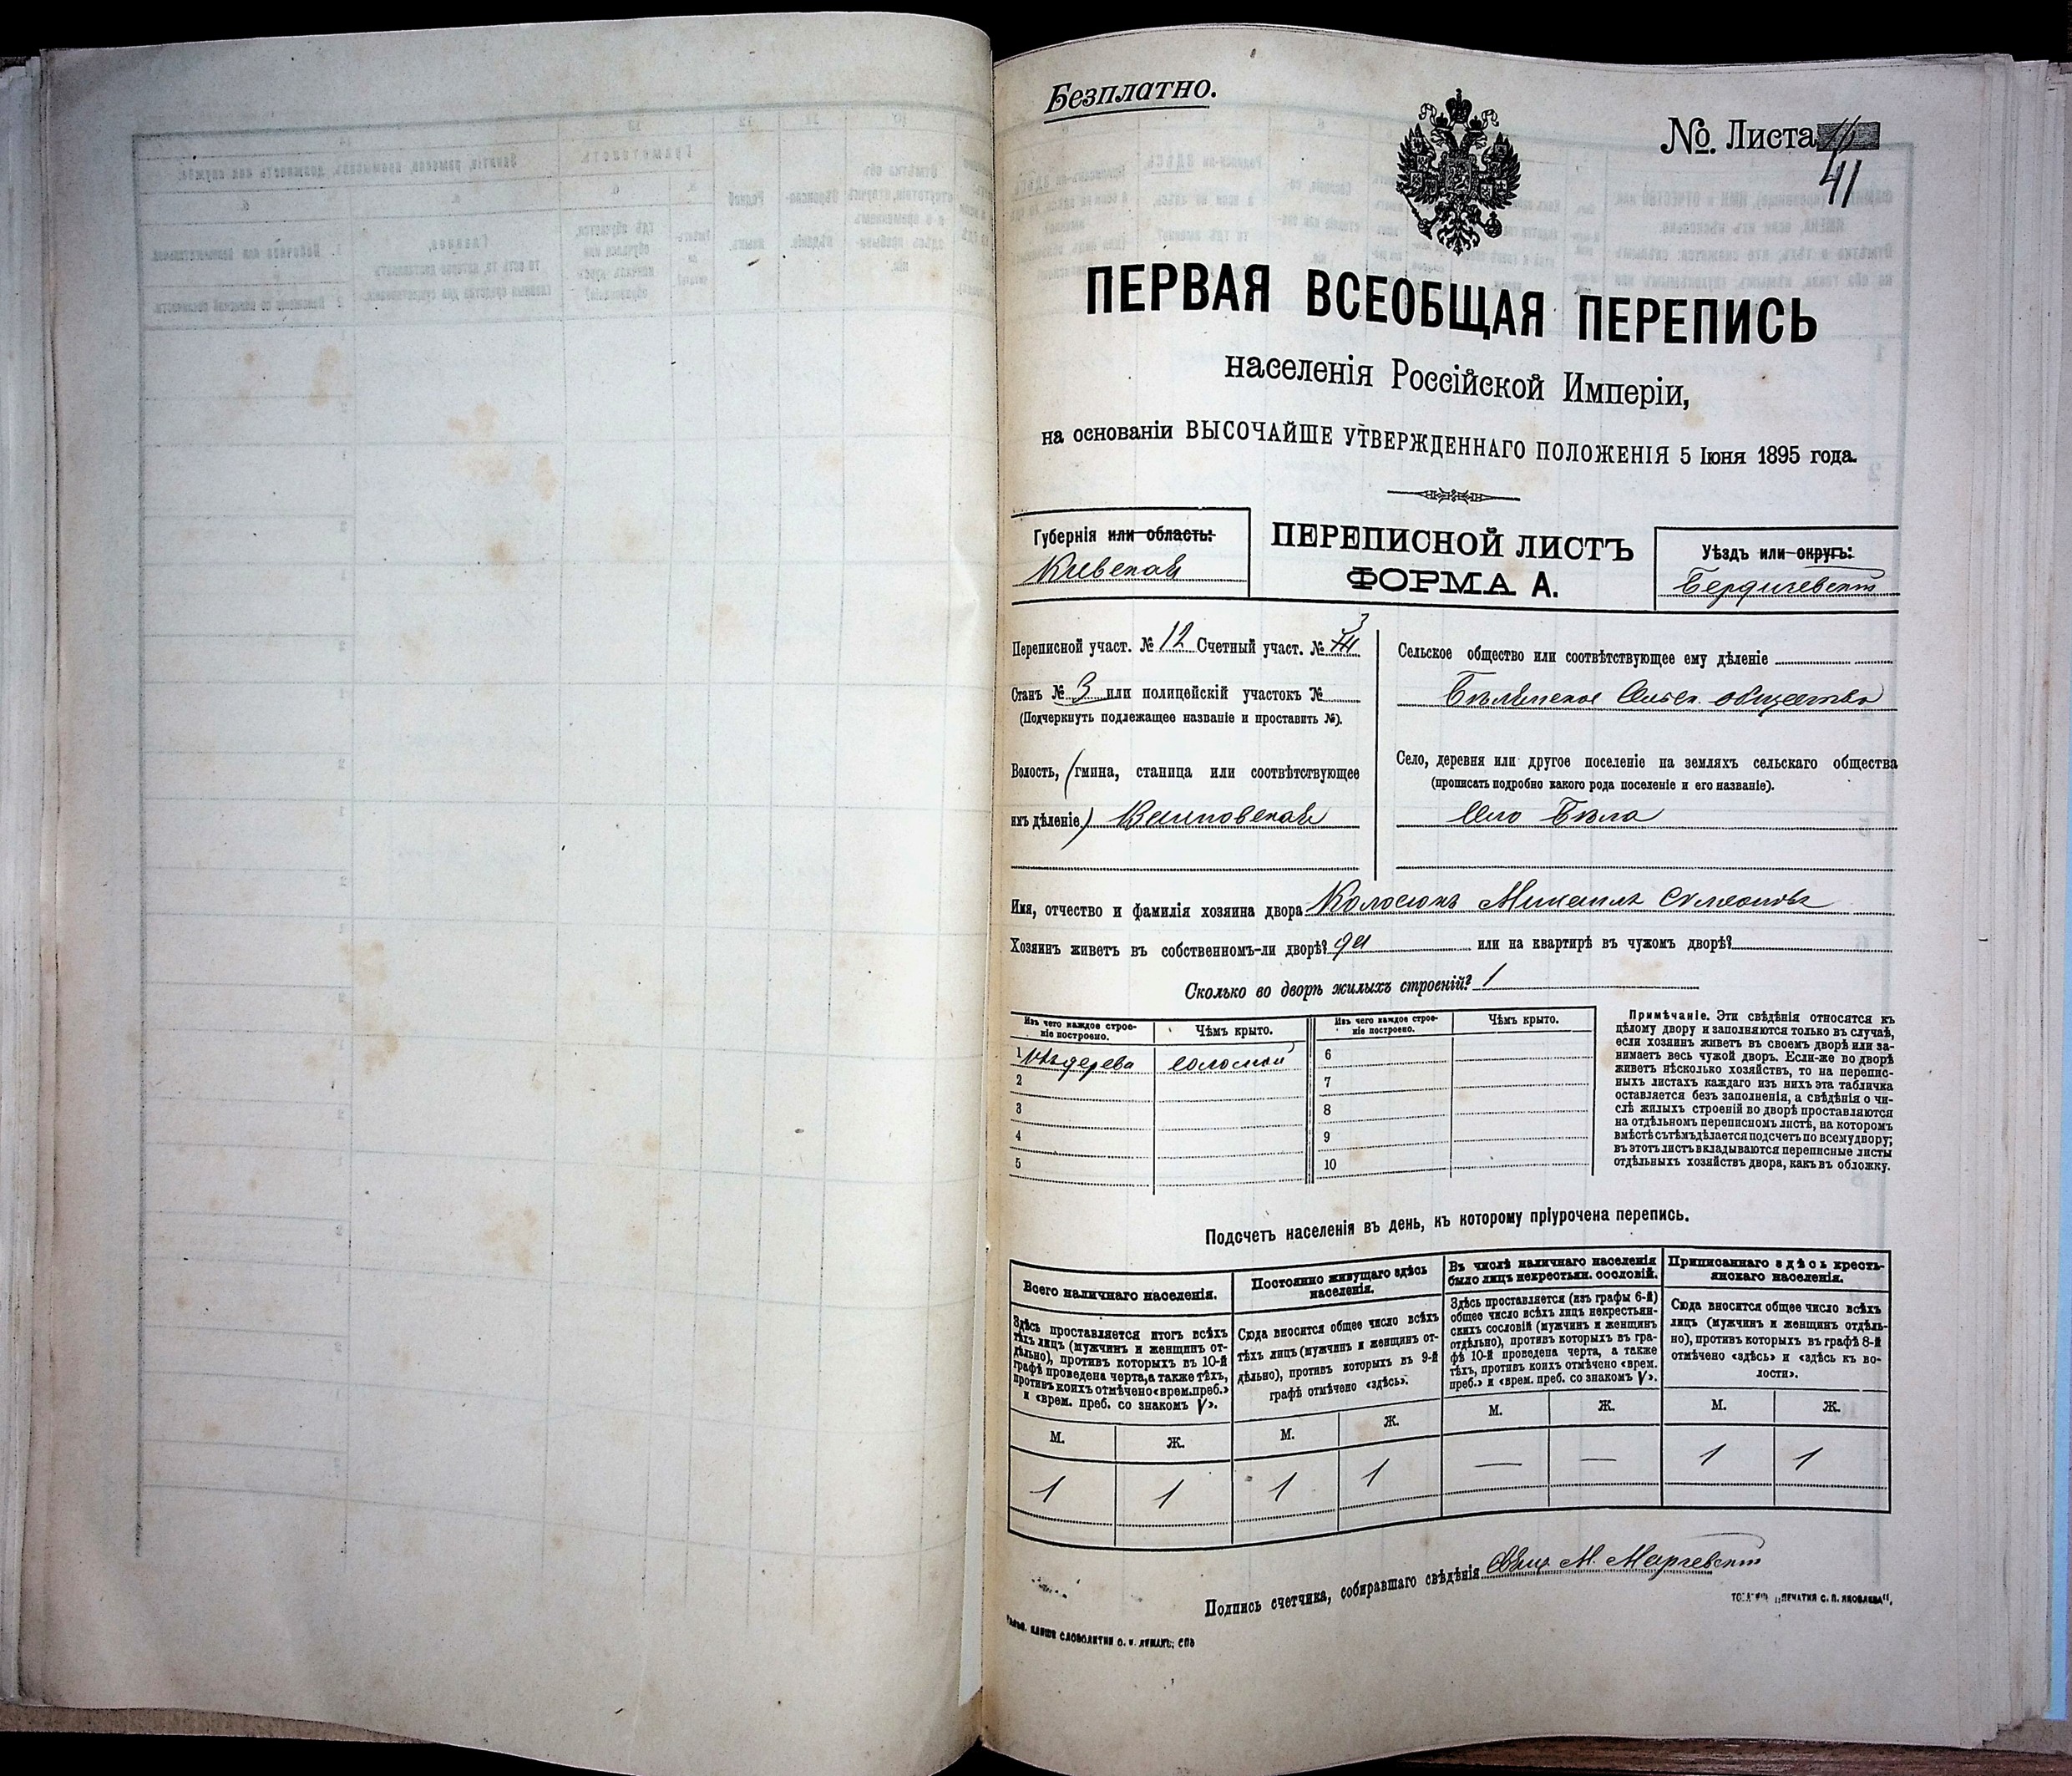 Безплатно.
№ Листа
41
ПЕРВАЯ ВСЕОБЩАЯ ПЕРЕПИСЬ
населенія Россійской Имперіи,
на основаніи ВЫСОЧАЙШЕ УТВЕРЖДЕННАГО ПОЛОЖЕНІЯ 5 Іюня 1895 года.
Губернія или область:
Кіевская
ПЕРЕПИСНОЙ ЛИСТЪ
ФОРМА А.
Уѣздъ или округъ:
Бердичевскій
Переписной участ. № 12 Счетный участ. № 3
Станъ № 3 или полицейскій участокъ №
(Подчеркнуть подлежащее названіе и проставить №).
Волость, (гмина, станица или соотвѣтствующее
имъ дѣленіе)
Сельское общество или соотвѣтствующее ему дѣленіе
Сельск. общество
Село, деревня или другое поселеніе на земляхъ сельскаго общества
(прописать подробно какого рода поселеніе и его названіе).
Село Бѣла
Имя, отчество и фамилія хозяина двора Колосюкъ Михаилъ
Хозяинъ живетъ въ собственномъ-ли дворѣ? да или на квартирѣ въ чужомъ дворѣ?
Сколько во дворѣ жилыхъ строеній? 1
Изъ чего каждое строе-
ніе построено.
Чѣмъ крыто.
Изъ чего каждое строе-
ніе построено.
Чѣмъ крыто.
1 изъ дерева соломой
2
3
4
5
6
7
8
9
10
Примѣчаніе. Эти свѣдѣнія относятся къ
цѣлому двору и заполняются только въ случаѣ,
если хозяинъ живетъ въ своемъ дворѣ или за-
нимаетъ весь чужой дворъ. Если-же во дворѣ
живетъ нѣсколько хозяйствъ, то на перепис-
ныхъ листахъ каждаго изъ нихъ эта табличка
оставляется безъ заполненія, а свѣдѣнія о чи-
слѣ жилыхъ строеній во дворѣ проставляются
на отдѣльномъ переписномъ листѣ, на которомъ
вмѣстѣ съ тѣмъ дѣлается подсчетъ по всему двору;
въ этотъ листъ вкладываются переписные листы
отдѣльныхъ хозяйствъ двора, какъ въ обложку.
Подсчетъ населенія въ день, къ которому пріурочена перепись.
Всего наличнаго населенія.
Здѣсь проставляется итогъ всѣхъ
тѣхъ лицъ (мужчинъ и женщинъ от-
дѣльно), противъ которыхъ въ 10-й
графѣ проведена черта, а также тѣхъ,
противъ коихъ отмѣчено «врем. преб.»
и «врем. преб. со знакомъ V».
М.
Ж.
1
1
Постоянно живущаго здѣсь
населенія.
Сюда вносится общее число всѣхъ
тѣхъ лицъ (мужчинъ и женщинъ от-
дѣльно), противъ которыхъ въ 9-й
графѣ отмѣчено «здѣсь».
М.
Ж.
1
1
Въ числѣ наличнаго населенія
было лицъ некрестьян. сословій.
Здѣсь проставляется (изъ графы 6-й)
общее число всѣхъ лицъ некрестьян-
скихъ сословій (мужчинъ и женщинъ
отдѣльно), противъ которыхъ въ гра-
фѣ 10-й проведена черта, а также
тѣхъ, противъ коихъ отмѣчено «врем.
преб.» и «врем. преб. со знакомъ V».
М.
Ж.
—
—
Приписаннаго здѣсь кресть-
янскаго населенія.
Сюда вносится общее число всѣхъ
лицъ (мужчинъ и женщинъ отдѣль-
но), противъ которыхъ въ графѣ 8-й
отмѣчено «здѣсь» и «здѣсь къ во-
лости».
М.
Ж.
1
1
Подпись счетчика, собиравшаго свѣдѣнія М.